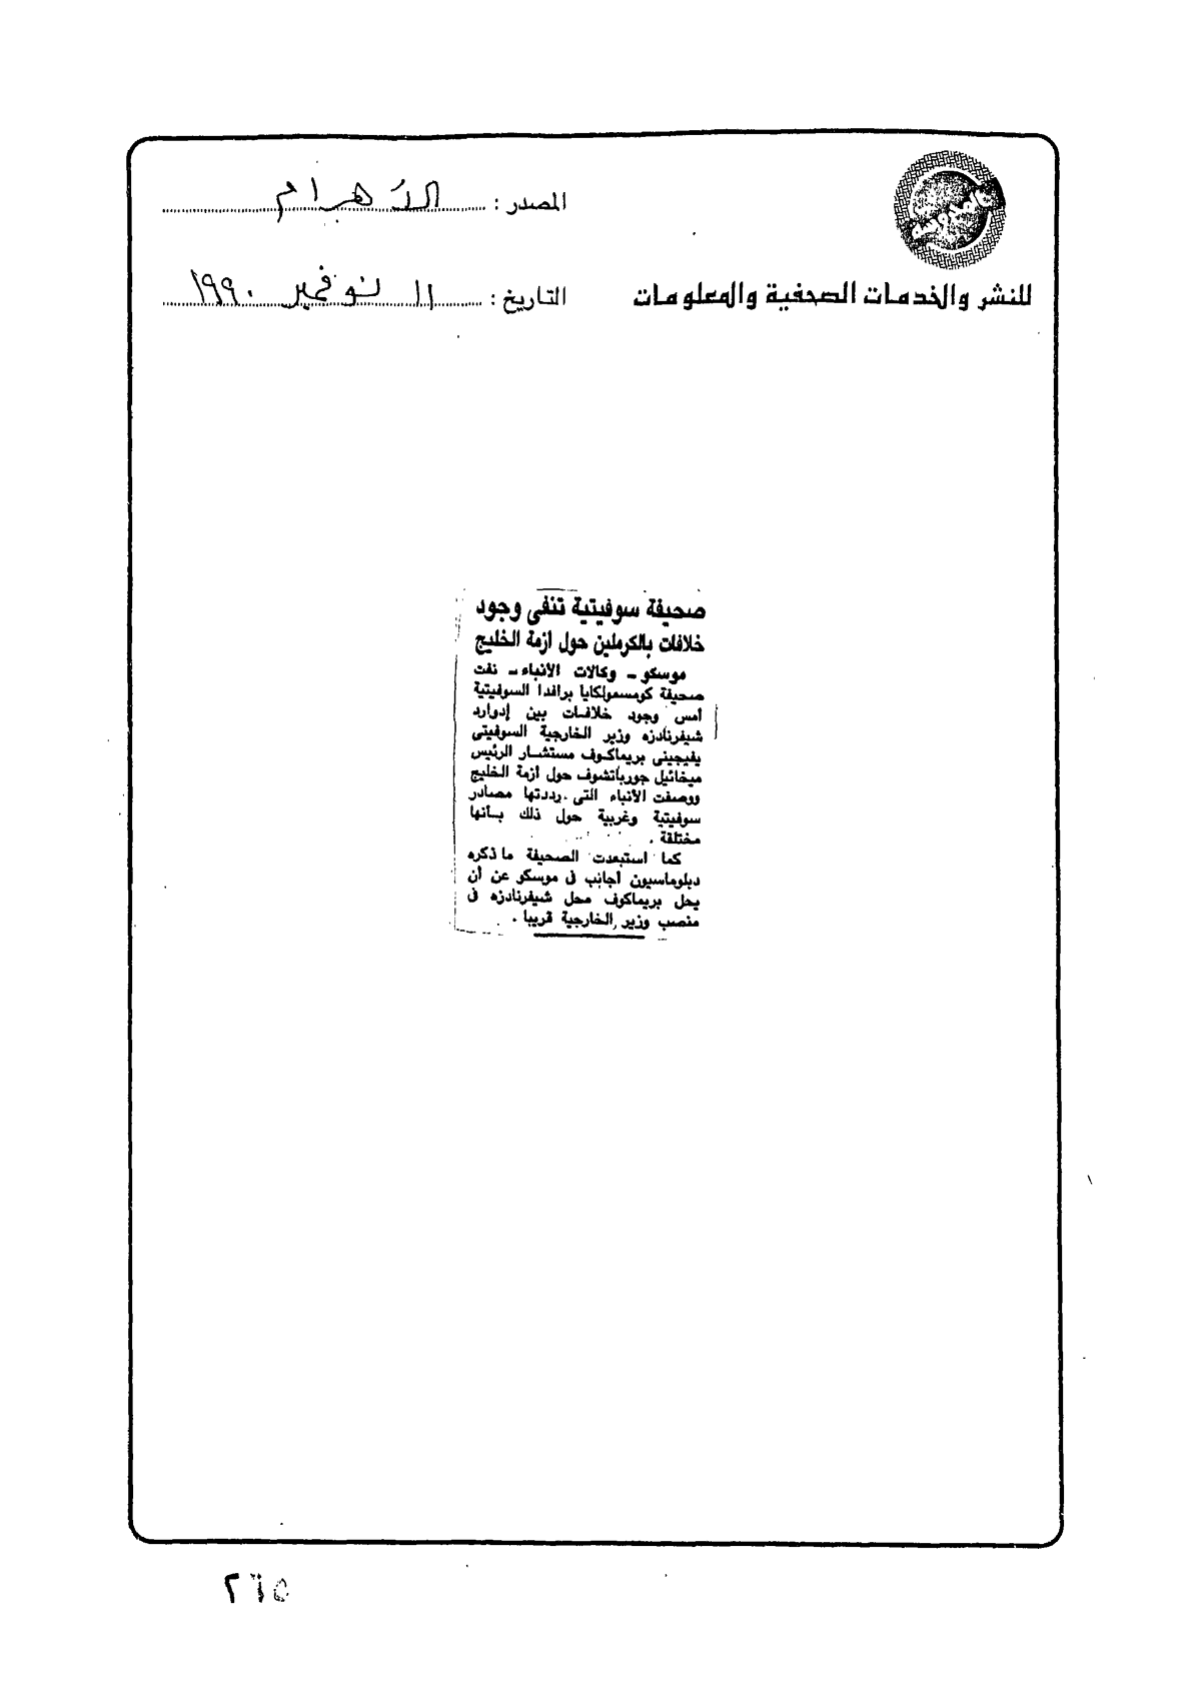 المصدر : الأهرام
للنشر والخدمات الصحفية والمعلومات
التاريخ : ١١ نوفمبر ١٩٩٠
صحيفة سوفيتية تنفى وجود
خلافات بالكرملين حول ازمة الخليج
موسكو ـ وكالات الأنباء ـ نفت
صحيفة كومسمولكايا برافدا السوفيتية
أمس وجود خلافات بين إدوارد
شيفرنادزه وزير الخارجية السوفيتى
يفيجينى بريماكوف مستشار الرئيس
ميخائيل جورباتشوف حول ازمة الخليج
ووصفت الأنباء التى رددتها مصادر
سوفيتية وغربية حول ذلك بأنها
مختلقة .
كما استبعدت الصحيفة ماذكره
دبلوماسيون اجانب فى موسكو عن أن
يحل بريماكوف محل شيفرنادزه فى
منصب وزير الخارجية قريبا .
٢٦٥